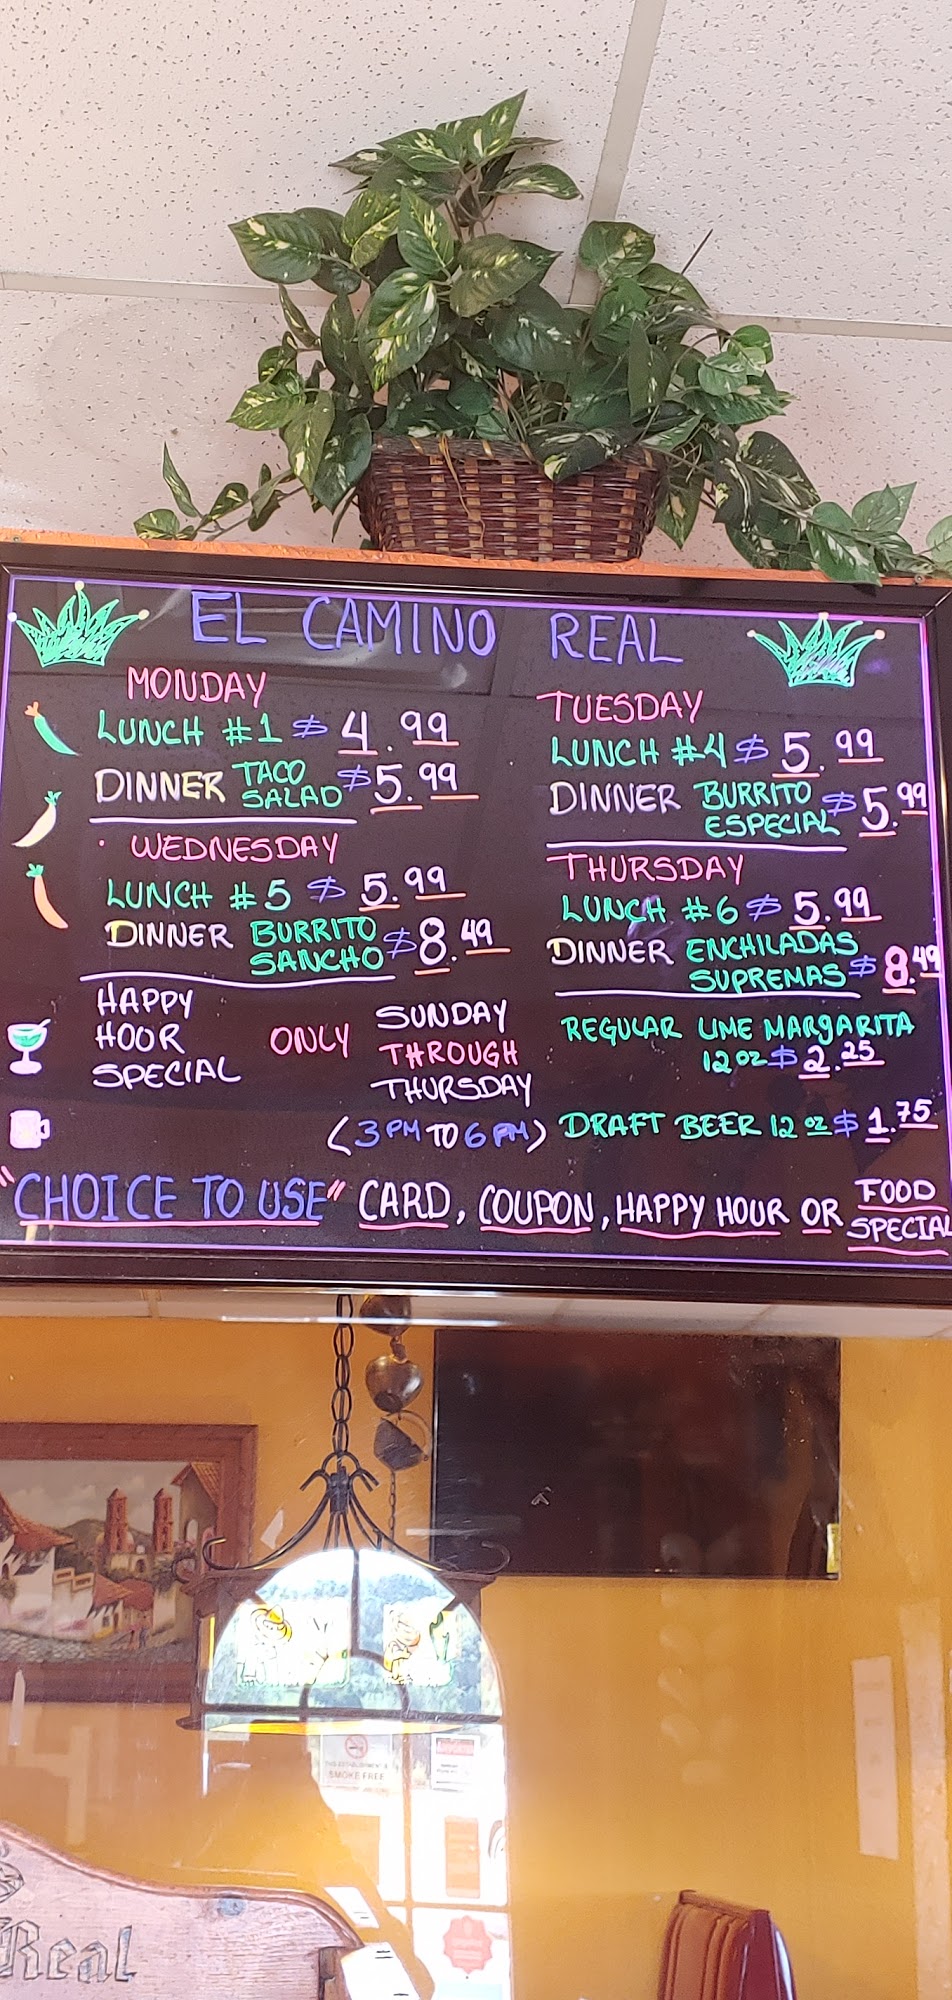 EL CAMINO REAL
MONDAY
LUNCH #1 $4.99
DINNER TACO SALAD $5.99
TUESDAY
LUNCH #4 $5.99
DINNER BURRITO ESPECIAL $5.99
WEDNESDAY
LUNCH #5 $5.99
DINNER BURRITO SANCHO $8.49
THURSDAY
LUNCH #6 $5.99
DINNER ENCHILADAS SUPREMAS $8.49
HAPPY
HOOR
SPECIAL
ONLY
SUNDAY
THROUGH
THURSDAY
(3PM TO 6PM)
REGULAR LIME MARGARITA
12 oz $2.25
DRAFT BEER 12 oz $1.75
"CHOICE TO USE" CARD, COUPON, HAPPY HOUR OR FOOD SPECIAL
SMOKE FREE
Real